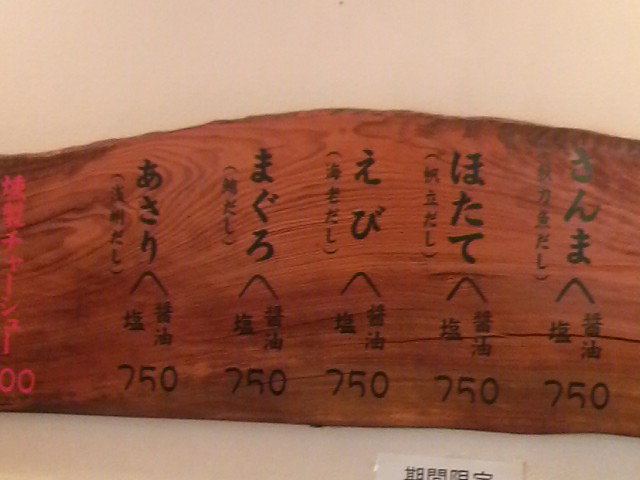 さんま
（秋刀魚だし）
醤油
塩
750
ほたて
（帆立だし）
醤油
塩
750
えび
（海老だし）
醤油
塩
750
まぐろ
（鮪だし）
醤油
塩
750
あさり
（浅蜊だし）
醤油
塩
750
燻製チャーシュー
00
期間限定